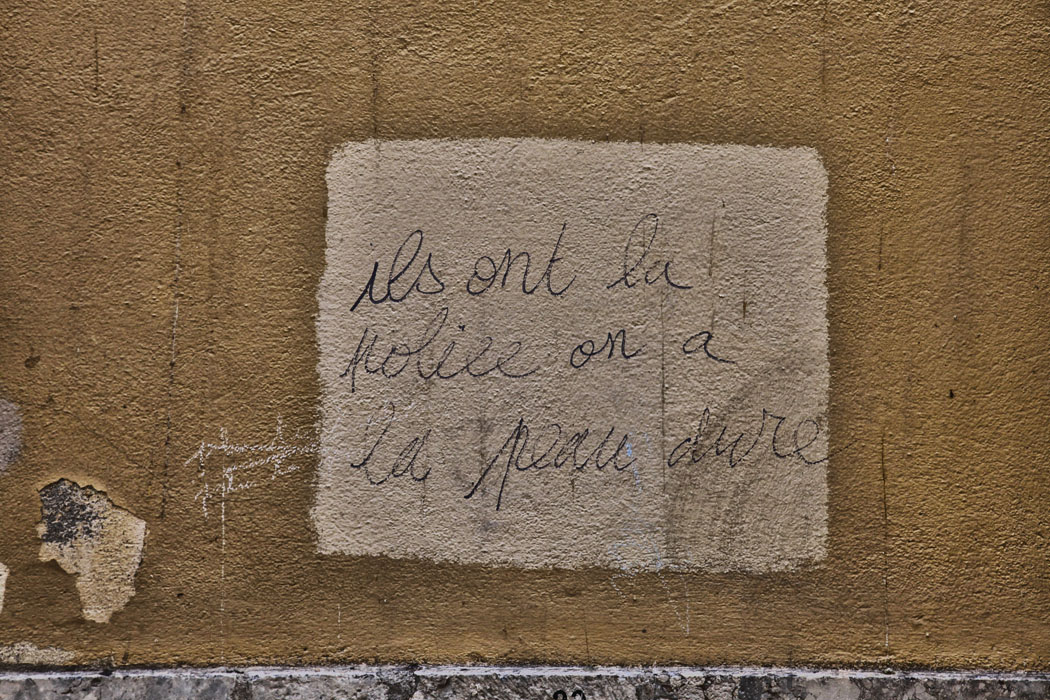 ils ont la
police on a
la peau dure